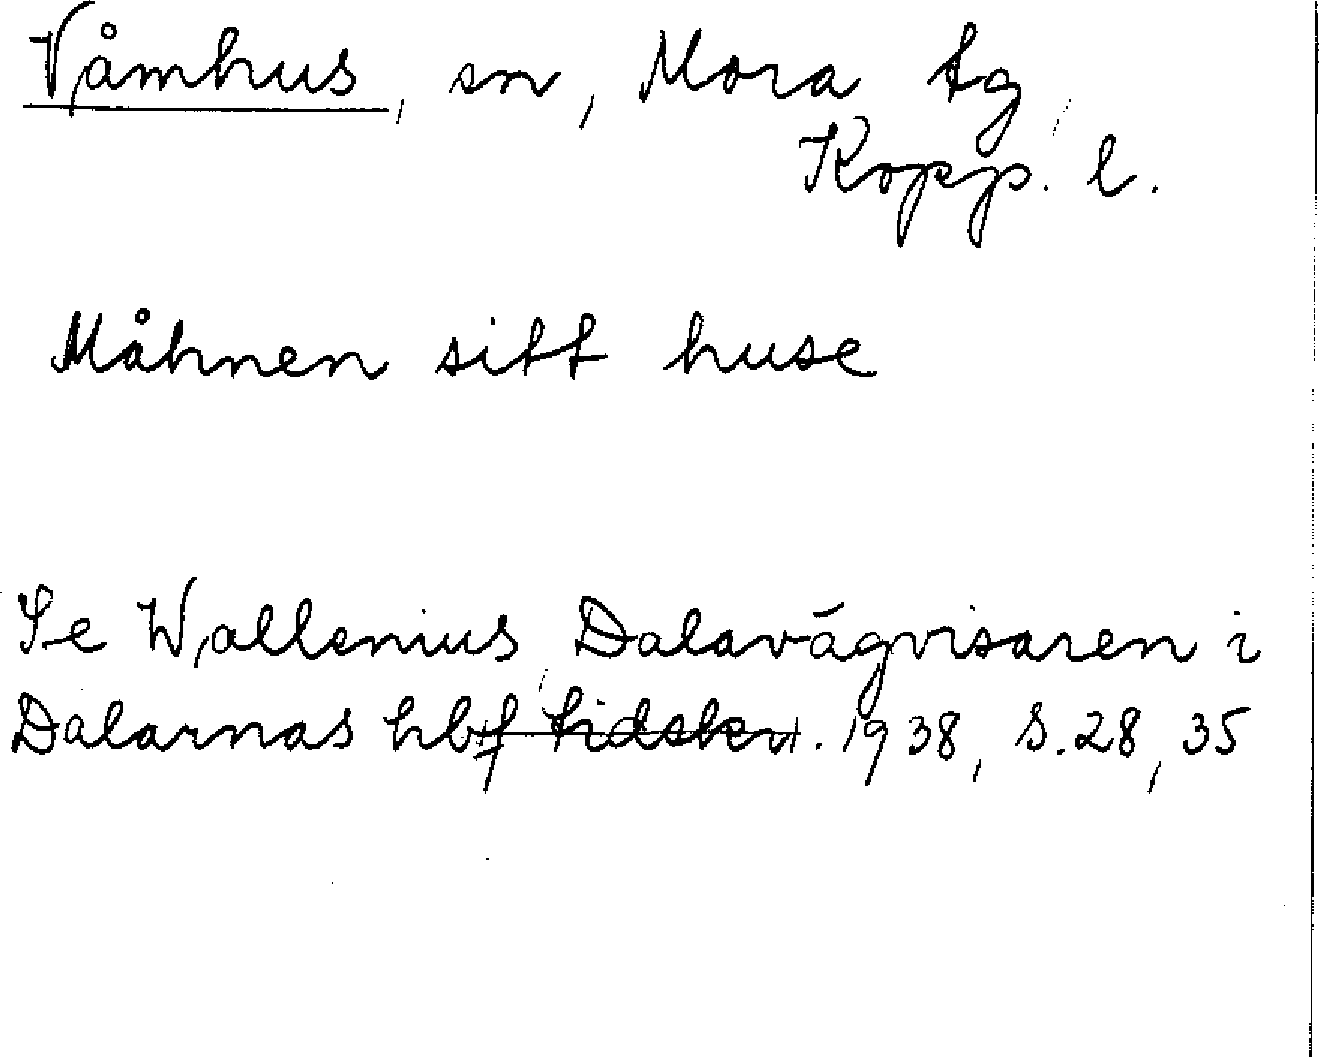 Våmhus, sn, Mora tg,
Kopp. l.
Måhnen sitt huse
Se Wallenius, Dalavägvisaren i
Dalarnas hbf tidskr. 1938, s. 28, 35